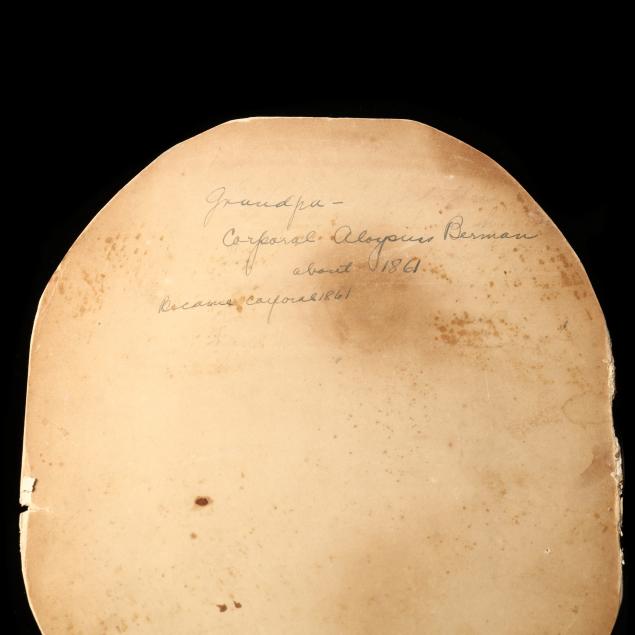 Grandpa -
Corporal Aloysius Berman
about 1861
Became corporal 1861